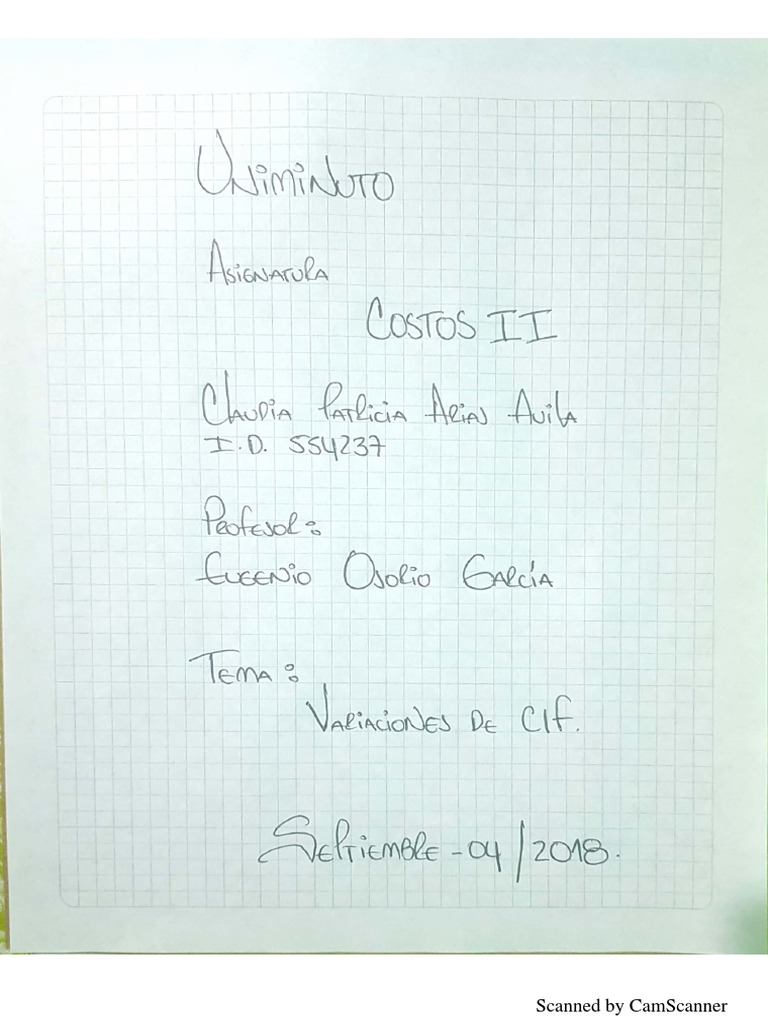 Uniminuto
Asignatura
Costos II
Claudia Patricia Arias Avila
I.D. 554237
Profesor:
Eugenio Osorio García
Tema:
Variaciones de CIF.
Septiembre - 04/2018.
Scanned by CamScanner